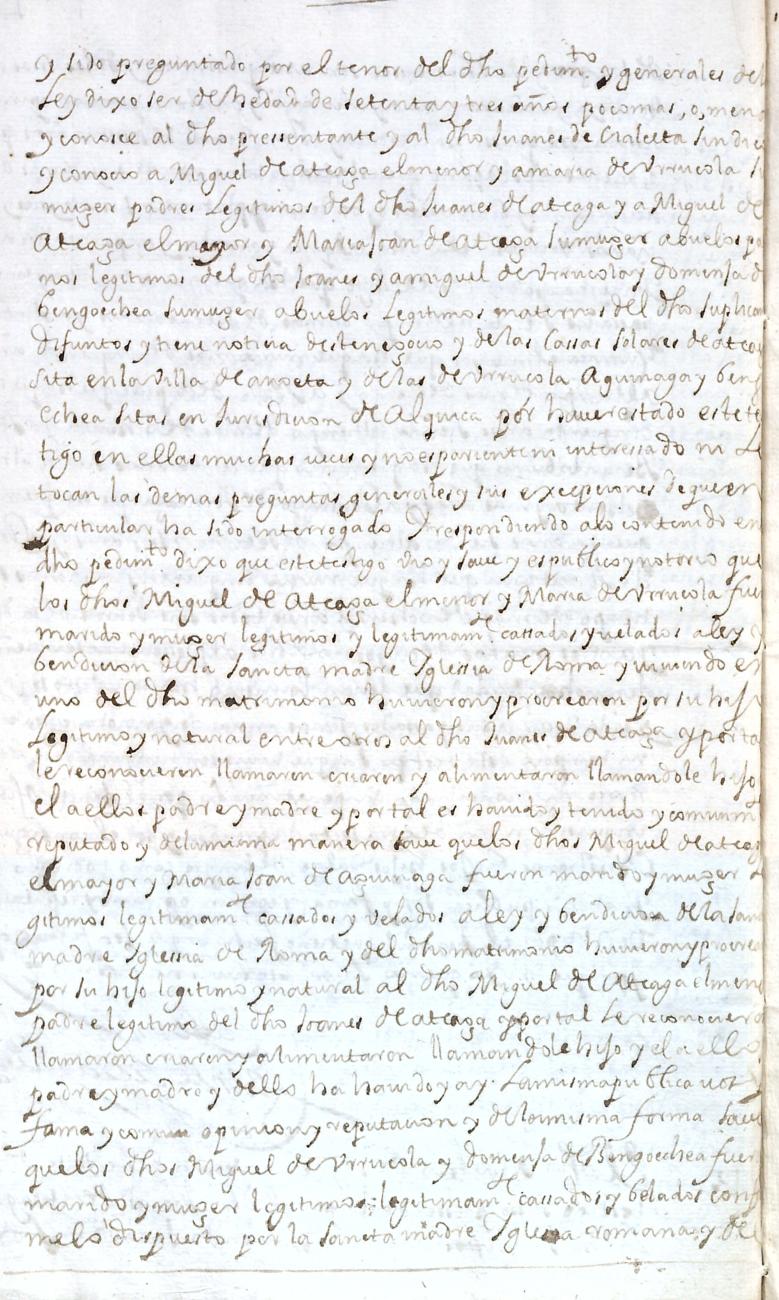 y sido preguntado por el tenor del dho pedim.to y generales de
Ley dixo ser de hedad de setenta y tres años poco mas, o, meno
y conosce al dho pressentante y al dho Juanes de sindi
y conocio a Miguel de Ateaga el menor y a maria de Vrrucola su
muger padres Legitimos del dho Juanes de ateaga y a Miguel de
Ateaga el mayor y Maria Joan de Ateaga su muger abuelos pa
nos legitimos del dho Joanes y a miguel de Vrrucola y domensa d
bengoechea su muger abuelos Legitimos maternos del dho suplican
difuntos y tiene noticia deste negocio y de las Cassas solares de ateag
sita en la Villa de anoeta y de las de Vrrucola Aguinaga y beng
echea sitas en Jurisdicion de Alquica por hauer estado este te
tigo en ellas muchas veces y no es pariente ni interessado ni Le
tocan las demas preguntas generales y sus excepciones de que en
particular ha sido interrogado Y respondiendo a lo contenido en
dho pedim.to dixo que este testigo vio y saue y es publico y notorio que
los dhos Miguel de Ateaga el menor y Maria de Vrrucola fue
marido y muger legitimos y legitimam.te cassados y velados a ley y
bendicion de la sancta madre Yglessia de Roma y viuiendo en
uno del dho matrimonio huuieron y procrearon por su hijo
Legitimo y natural entre otros al dho Juanes de Ateaga y por ta
le reconocieron llamaron criaron y alimentaron llamandole hijo
el a ellos padre y madre y por tal es hauido y tenido y comunm.te
reputado y de la misma manera saue que los dhos Miguel de ateag
el mayor y Maria Joan de Aguinaga fueron marido y muger Le
gitimos legitimam.te cassados y velados a ley y bendicion de la san
madre Yglessia de Roma y del dho matrimonio huuieron y procrea
por su hijo legitimo y natural al dho Miguel de Ateaga el meno
padre legitimo del dho Joanes de ateaga y por tal Le reconociero
llamaron criaron y alimentaron llamandole hijo y el a ello
padre y madre y dello ha hauido y ay La misma publica voz y
fama y comun opinion y reputacion y de la misma forma saue
que los dhos Miguel de Vrrucola y domensa de Bengoechea fuer
marido y muger legitimos legitimam.te cassados y belados conf
me lo dispuesto por la sancta madre Yglesia romana y de